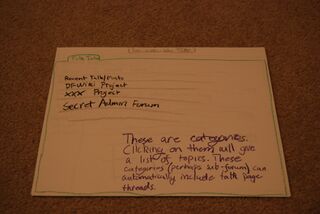 Recent Talk/Posts
DF Wiki Project
XXX Project
Secret Admin Forum
These are categories.
Clicking on them will give
a list of topics. These
categories (perhaps sub-forum) can
automatically include talk page
threads.